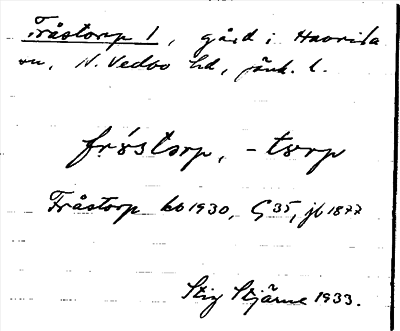 Fråstorp 1, gård i Haurida
sn, N. Vedbo hd, Jönk. l.
fróstorp, -torp
Fråstorp kb 1930, G 35, jb 1877
Stig Stjärne 1933.